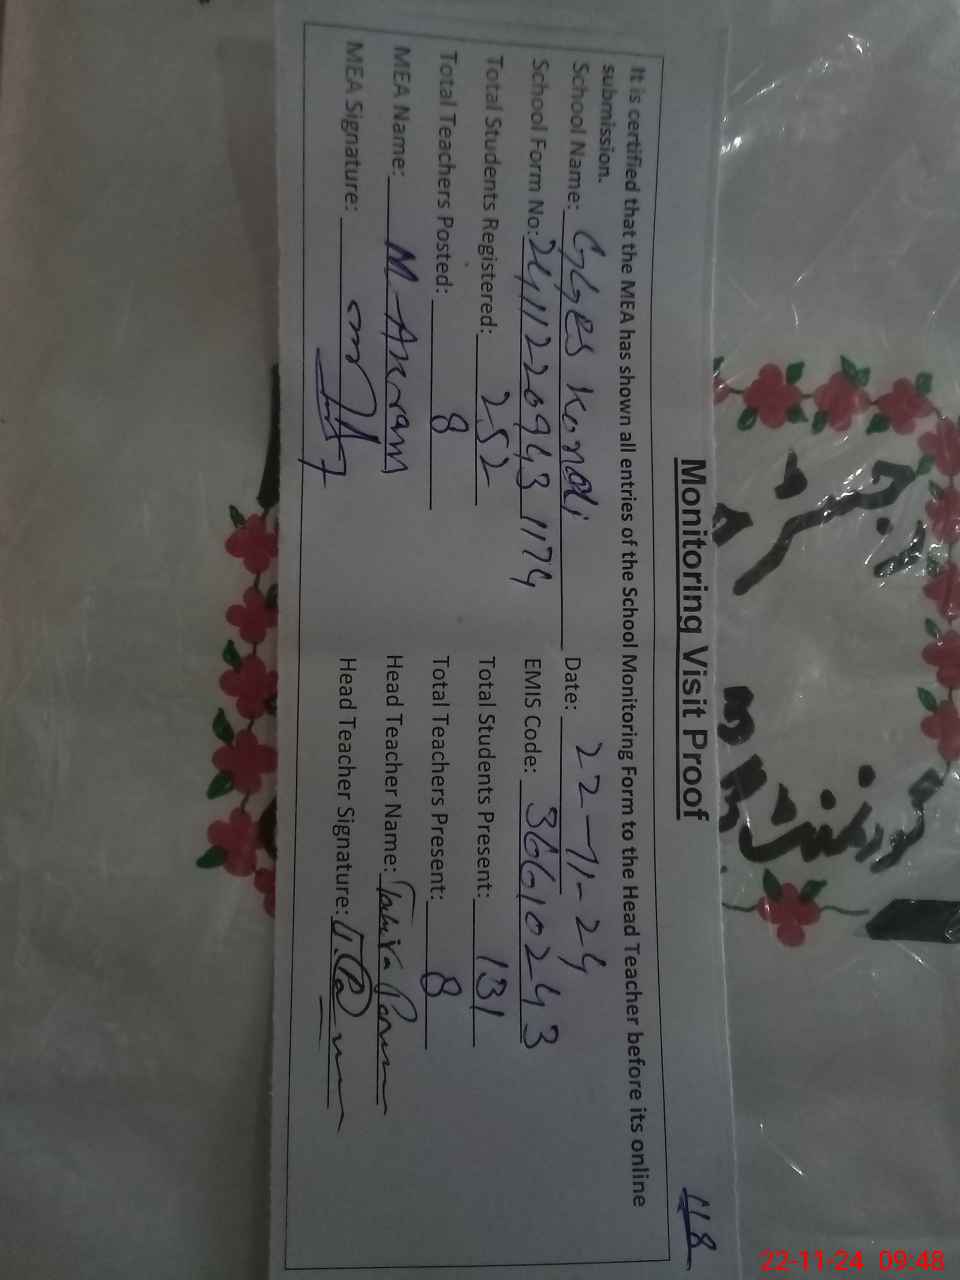 118
Monitoring Visit Proof
It is certified that the MEA has shown all entries of the School Monitoring Form to the Head Teacher before its online
submission.
School Name: GGES Kandi Date: 22-11-24
School Form No: 24112209431174 EMIS Code: 36610243
Total Students Registered: 252 Total Students Present: 131
Total Teachers Posted: 8 Total Teachers Present: 8
MEA Name: M-Akram Head Teacher Name: Tahira
MEA Signature: Head Teacher Signature:
22-11-24 09:48